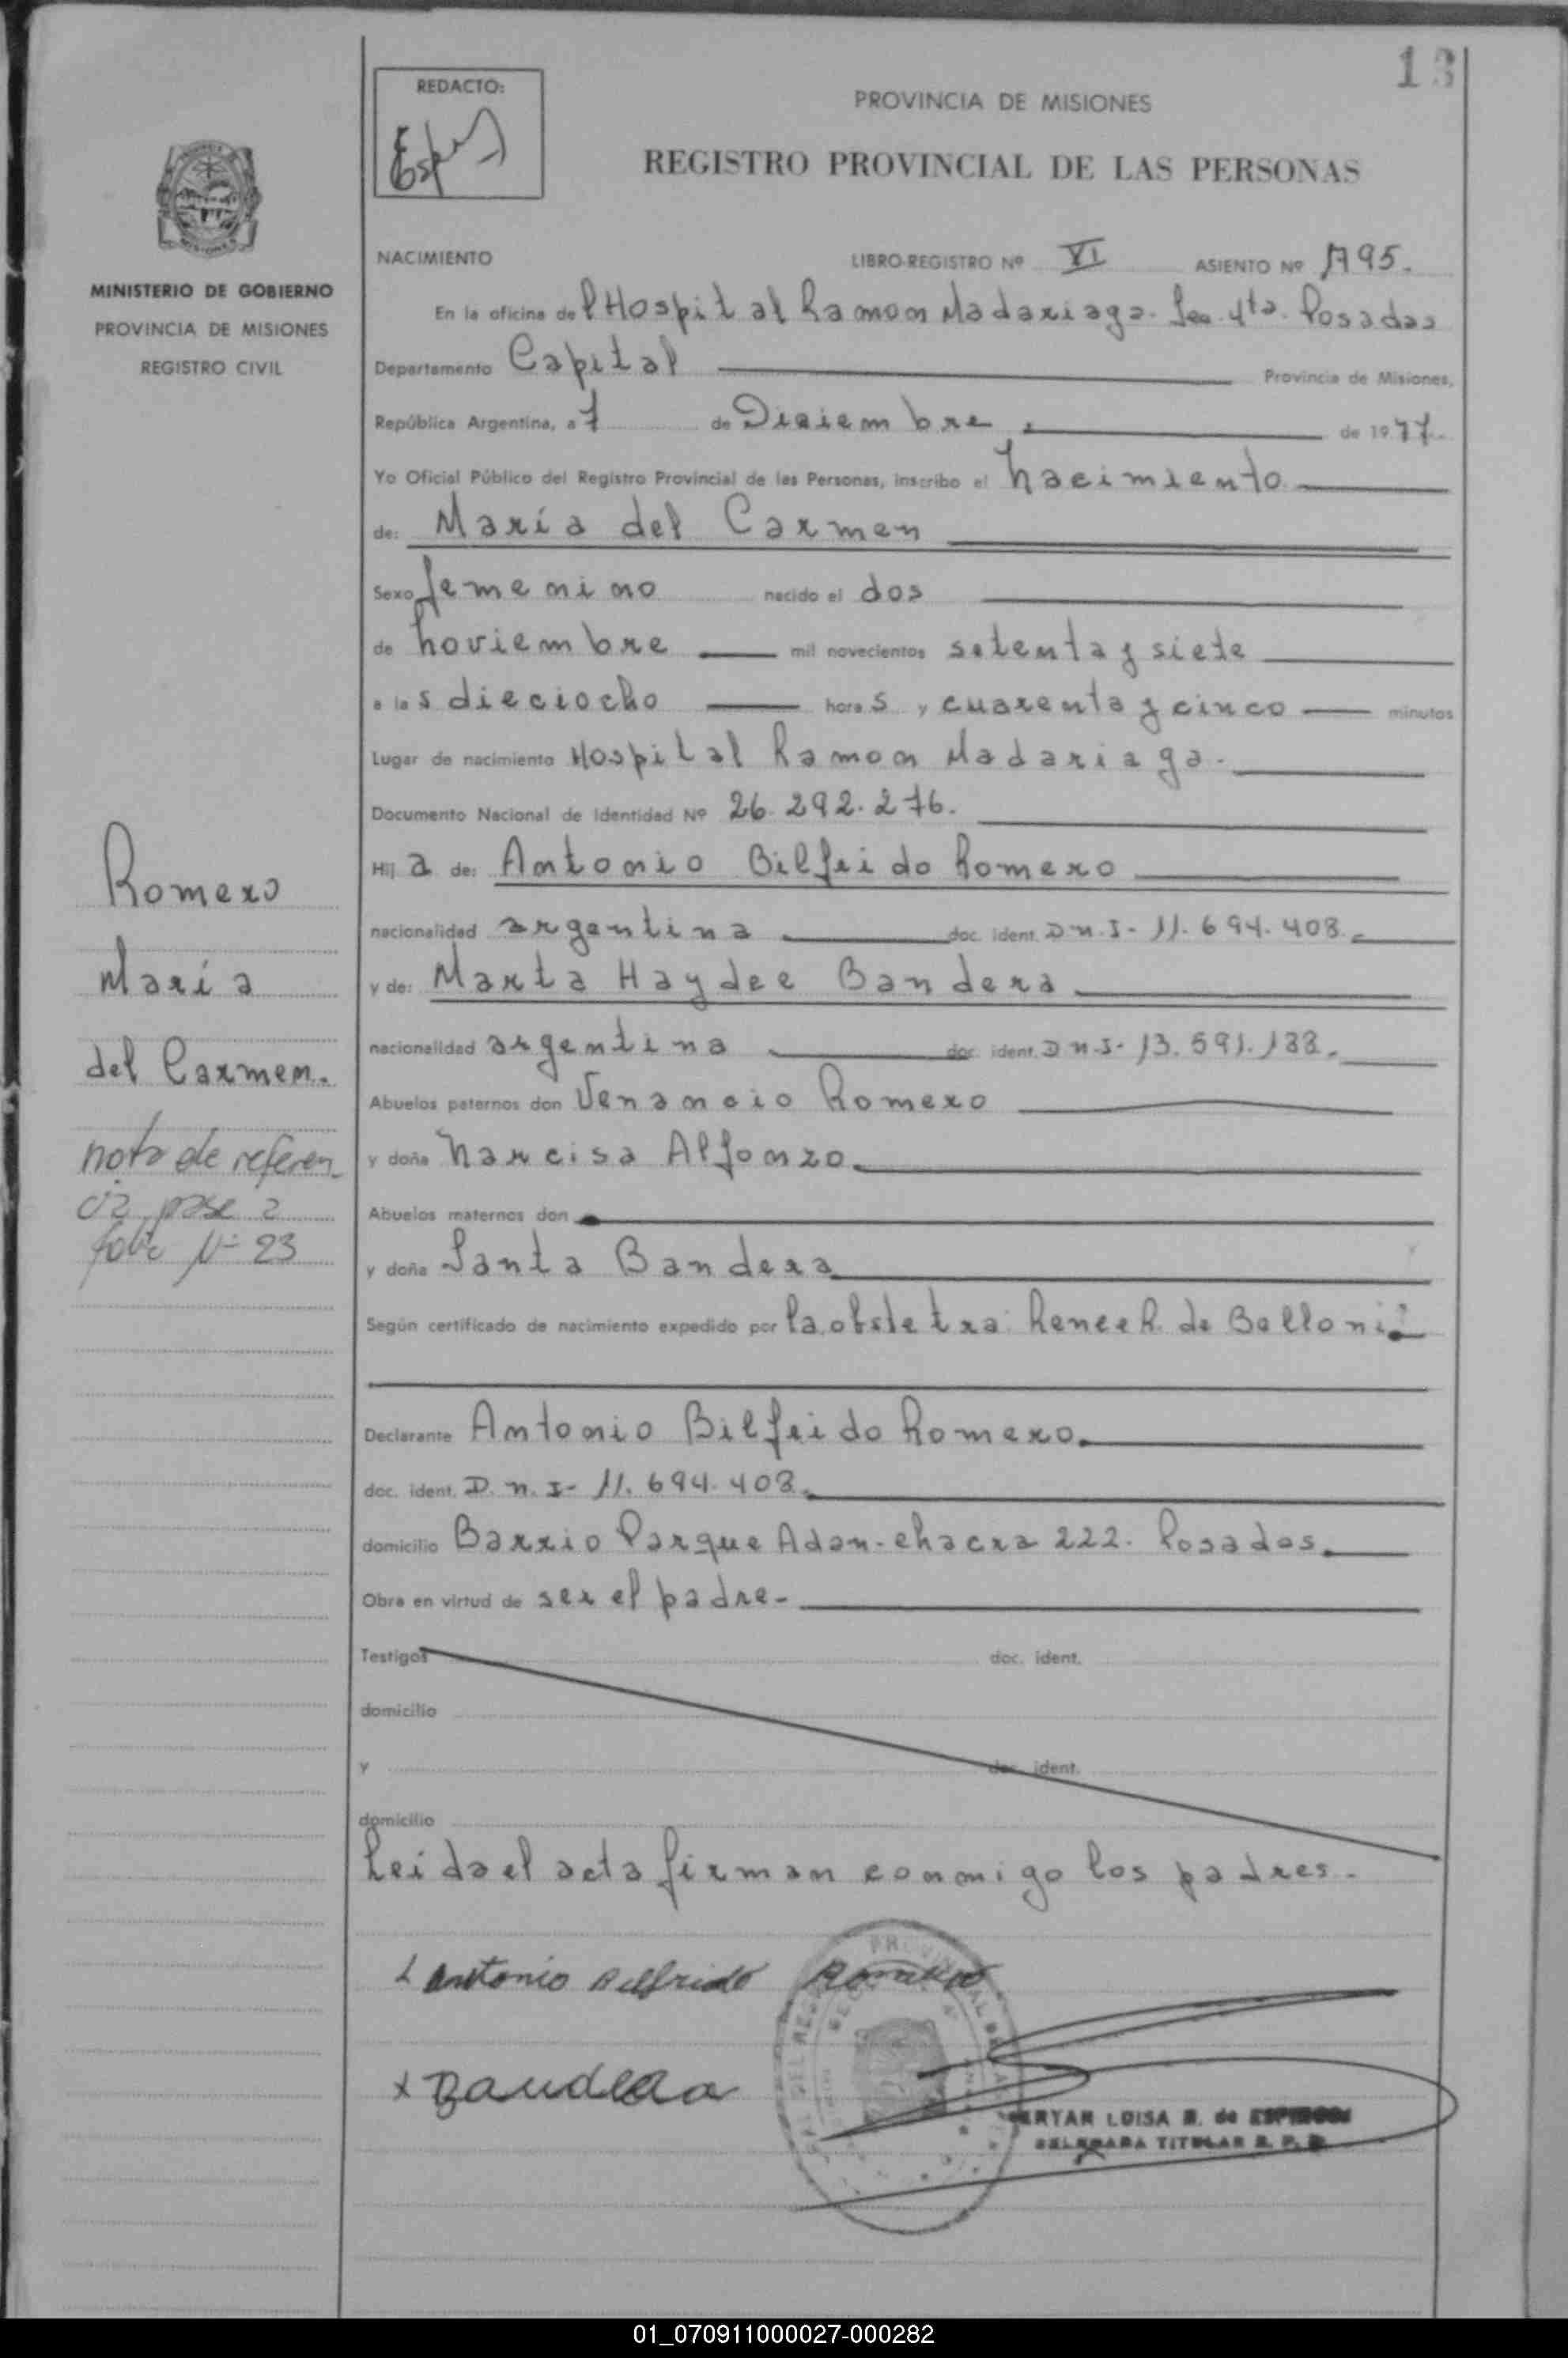 13
REDACTO:
PROVINCIA DE MISIONES
REGISTRO PROVINCIAL DE LAS PERSONAS
MINISTERIO DE GOBIERNO
PROVINCIA DE MISIONES
REGISTRO CIVIL
NACIMIENTO LIBRO-REGISTRO Nº VI ASIENTO Nº 1795.
En la oficina del Hospital Ramon Madariaga. Sec. 4ta. Posadas
Departamento Capital Provincia de Misiones,
República Argentina, a 7 de Diciembre de 1977.
Yo Oficial Público del Registro Provincial de las Personas, inscribo el nacimiento
de: María del Carmen
Sexo femenino nacido el dos
de noviembre mil novecientos setenta y siete
a las dieciocho horas y cuarenta y cinco minutos
Lugar de nacimiento Hospital Ramon Madariaga.
Documento Nacional de Identidad Nº 26.292.276.
Hija de: Antonio Bilfrido Romero
nacionalidad argentina doc. ident. D.N.I- 11.694.408.
y de: Marta Haydee Bandera
nacionalidad argentina doc. ident. D.N.I- 13.591.188.
Abuelos paternos don Venancio Romero
y doña Narcisa Alfonzo
Abuelos maternos don
y doña Santa Bandera
Según certificado de nacimiento expedido por la obstetra: Renee R. de Belloni
Declarante Antonio Bilfrido Romero
doc. ident. D.N.I- 11.694.408
domicilio Barrio Parque Adan-chacra 222. Posadas
Obra en virtud de ser el padre-
Testigos doc. ident.
domicilio
y doc. ident.
domicilio
Leida el acta firman conmigo los padres.
Antonio Bilfrido Romero
x Bandera
LUISA R. de
DELEGADA TITULAR R. P.
Romero
María
del Carmen.
nota de referen
cia pase a
folio Nº 23
01_070911000027-000282